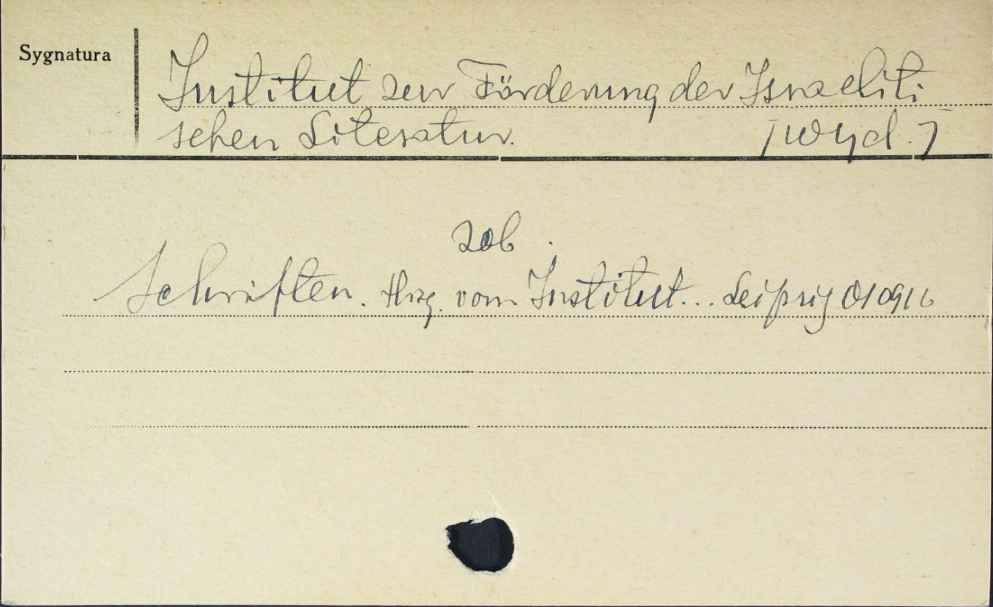 Sygnatura
Institut zur Förderung der Israeliti
schen Literatur. [wyd.]
zob.
Schriften. Hrzg. vom Institut... Leipzig